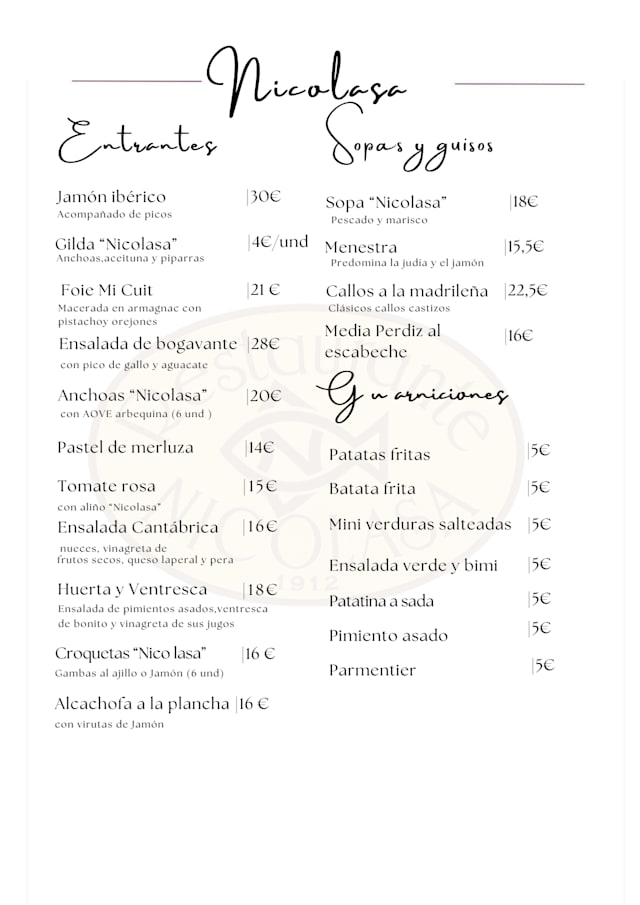 Nicolasa
Entrantes
Jamón ibérico |30€
Acompañado de picos
Gilda “Nicolasa” |4€/und
Anchoas,aceituna y piparras
Foie Mi Cuit |21 €
Macerada en armagnac con
pistachoy orejones
Ensalada de bogavante |28€
con pico de gallo y aguacate
Anchoas “Nicolasa” |20€
con AOVE arbequina (6 und )
Pastel de merluza |14€
Tomate rosa |15€
con aliño “Nicolasa”
Ensalada Cantábrica |16€
nueces, vinagreta de
frutos secos, queso laperal y pera
Huerta y Ventresca |18€
Ensalada de pimientos asados,ventresca
de bonito y vinagreta de sus jugos
Croquetas “Nico lasa” |16 €
Gambas al ajillo o Jamón (6 und)
Alcachofa a la plancha |16 €
con virutas de Jamón
Sopas y guisos
Sopa “Nicolasa” |18€
Pescado y marisco
Menestra |15,5€
Predomina la judía y el jamón
Callos a la madrileña |22,5€
Clásicos callos castizos
Media Perdiz al |16€
escabeche
Guarniciones
Patatas fritas |5€
Batata frita |5€
Mini verduras salteadas |5€
Ensalada verde y bimi |5€
Patatina a sada |5€
Pimiento asado |5€
Parmentier |5€
Restaurante
NICOLASA
1912